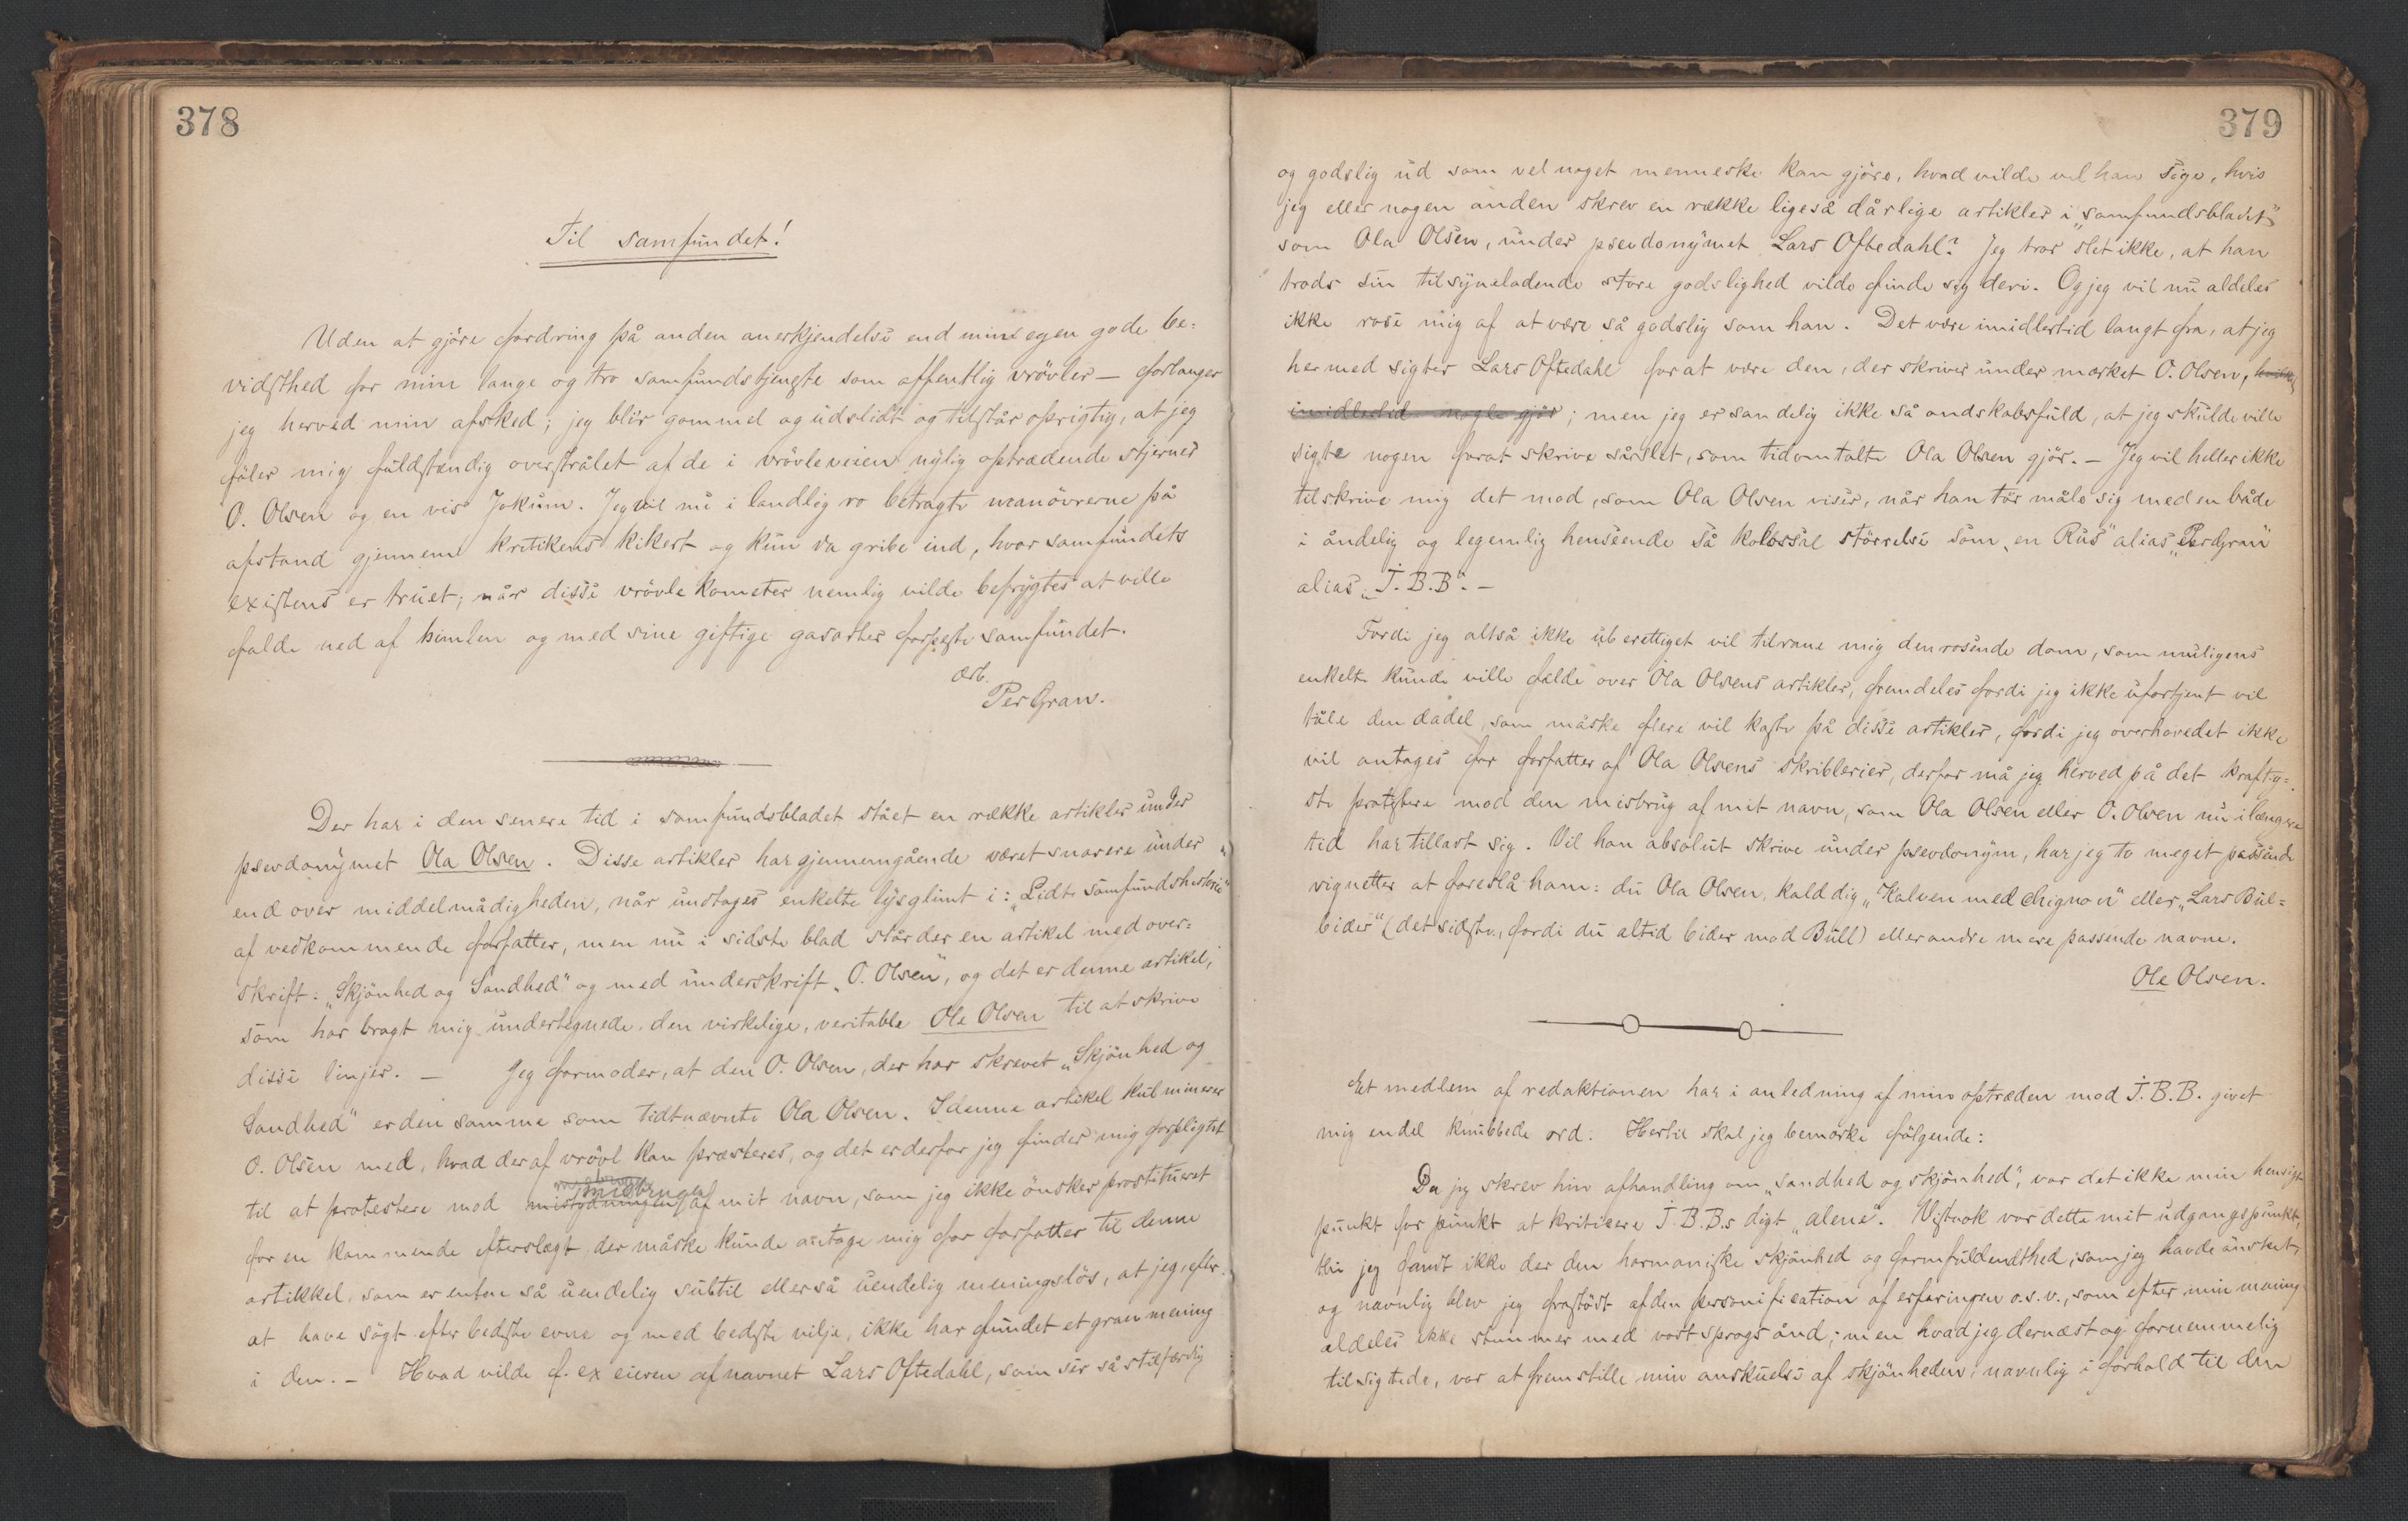 378
Til samfundet!
Uden at gjöre fordring på anden anerkjendelse end min egen gode be-
vidsthed for min lange og tro samfundstjeneste som offentlig vrövler — forlanger
jeg herved min afsked; jeg blir gammel og udslidt og tilstår oprigtig, at jeg
föler mig fuldstændig overstrålet af de i vrövleveien nylig optrædende stjerner
O. Olsen og en vis Jokum. Jeg vil nu i landlig ro betragte manövrerne på
afstand gjennem kritikens kikert og kun da gribe ind, hvor samfundets
existens er truet; når disse vrövlekometer nemlig vilde befrygtes at ville
falde ned af himlen og med sine giftige gasarter forpeste samfundet.
ærb.
Per Gran.
Der har i den senere tid i samfundsbladet stået en række artikler under
psevdonymet Ola Olsen. Disse artikler har gjennemgående været snarere under
end over middelmådigheden, når undtages enkelte lysglimt i: „Lidt samfundshistorie"
af vedkommende forfatter, men nu i sidste blad står der en artikel med over-
skrift: „Skjönhed og Sandhed" og med underskrift „O. Olsen", og det er denne artikel,
som har bragt mig undertegnede, den virkelige, veritable Ole Olsen til at skrive
disse linjer. — Jeg formoder, at den O. Olsen, der har skrevet „Skjönhed og
Sandhed" er den samme som tidtnævnte Ola Olsen. I denne artikel kulminerer
O. Olsen med, hvad der af vrövl kan præsteres, og det er derfor jeg finder mig forpligtet
til at protestere mod misbrugen af mit navn, som jeg ikke önsker prostitueret
for en kommende efterslægt, der måske kunde antage mig for forfatter til denne
artikkel, som er enten så uendelig subtil eller så uendelig meningslös, at jeg, efter
at have sögt efter bedste evne og med bedste vilje, ikke har fundet et gran mening
i den. — Hvad vilde f. ex eieren af navnet Lars Oftedahl, som ser så stilfærdig
379
og godslig ud som vel noget menneske kan gjöre, hvad vilde vel han sige, hvis
jeg eller nogen anden skrev en række ligeså dårlige artikler i „samfundsbladet"
som Ola Olsen, under psevdonymet Lars Oftedahl? Jeg tror slet ikke, at han
trods sin tilsyneladende store godslighed vilde finde sig deri. Og jeg vil nu aldeles
ikke rose mig af at være så godslig som han. Det være imidlertid langt fra, at jeg
hermed sigter Lars Oftedahl for at være den, der skriver under mærket O. Olsen, hvilket
imidlertid nogle gjör; men jeg er sandelig ikke så ondskabsfuld, at jeg skulde ville
sigte nogen forat skrive så slet, som tidomtalte Ola Olsen gjör. — Jeg vil heller ikke
tilskrive mig det mod, som Ola Olsen viser, når han tör måle sig med en både
i åndelig og legemlig henseende så kolossal störrelse som „en Rus" alias „Per Gran"
alias „J. B. B". —
Fordi jeg altså ikke uberettiget vil tilrane mig den rosende dom, som muligens
enkelte kunde ville fælde over Ola Olsens artikler, fremdeles fordi jeg ikke ufortjent vil
tåle den dadel, som måske flere vil kaste på disse artikler, fordi jeg overhovedet ikke
vil antages for forfatter af Ola Olsens skriblerier, derfor må jeg herved på det kraftig-
ste protestere mod den misbrug af mit navn, som Ola Olsen eller O. Olsen nu i længere
tid har tilladt sig. Vil han absolut skrive under psevdonym, har jeg to meget passende
vignetter at foreslå ham: du Ola Olsen, kald dig „Kalven med Chignon" eller „Lars Bul-
bider" (det sidste, fordi du altid bider mod Bull) eller andre mere passende navne.
Ole Olsen.
Et medlem af redaktionen har i anledning af min optræden mod J. B. B. givet
mig endel knubbede ord. Hertil skal jeg bemærke fölgende:
Da jeg skrev hin afhandling om „sandhed og skjönhed", var det ikke min hensigt
punkt for punkt at kritisere J. B. B.s digt „alene". Vistnok var dette mit udgangspunkt,
thi jeg fandt ikke der den harmoniske skjönhed og formfuldendthed, som jeg havde önsket,
og navnlig blev jeg frastödt af den personification af erfaringen o.s.v., som efter min mening
aldeles ikke stemmer med vort sprogs ånd; men hvad jeg dernæst og fornemmelig
tilsigtede, var at fremstille min anskuelse af skjönheden, navnlig i forhold til den